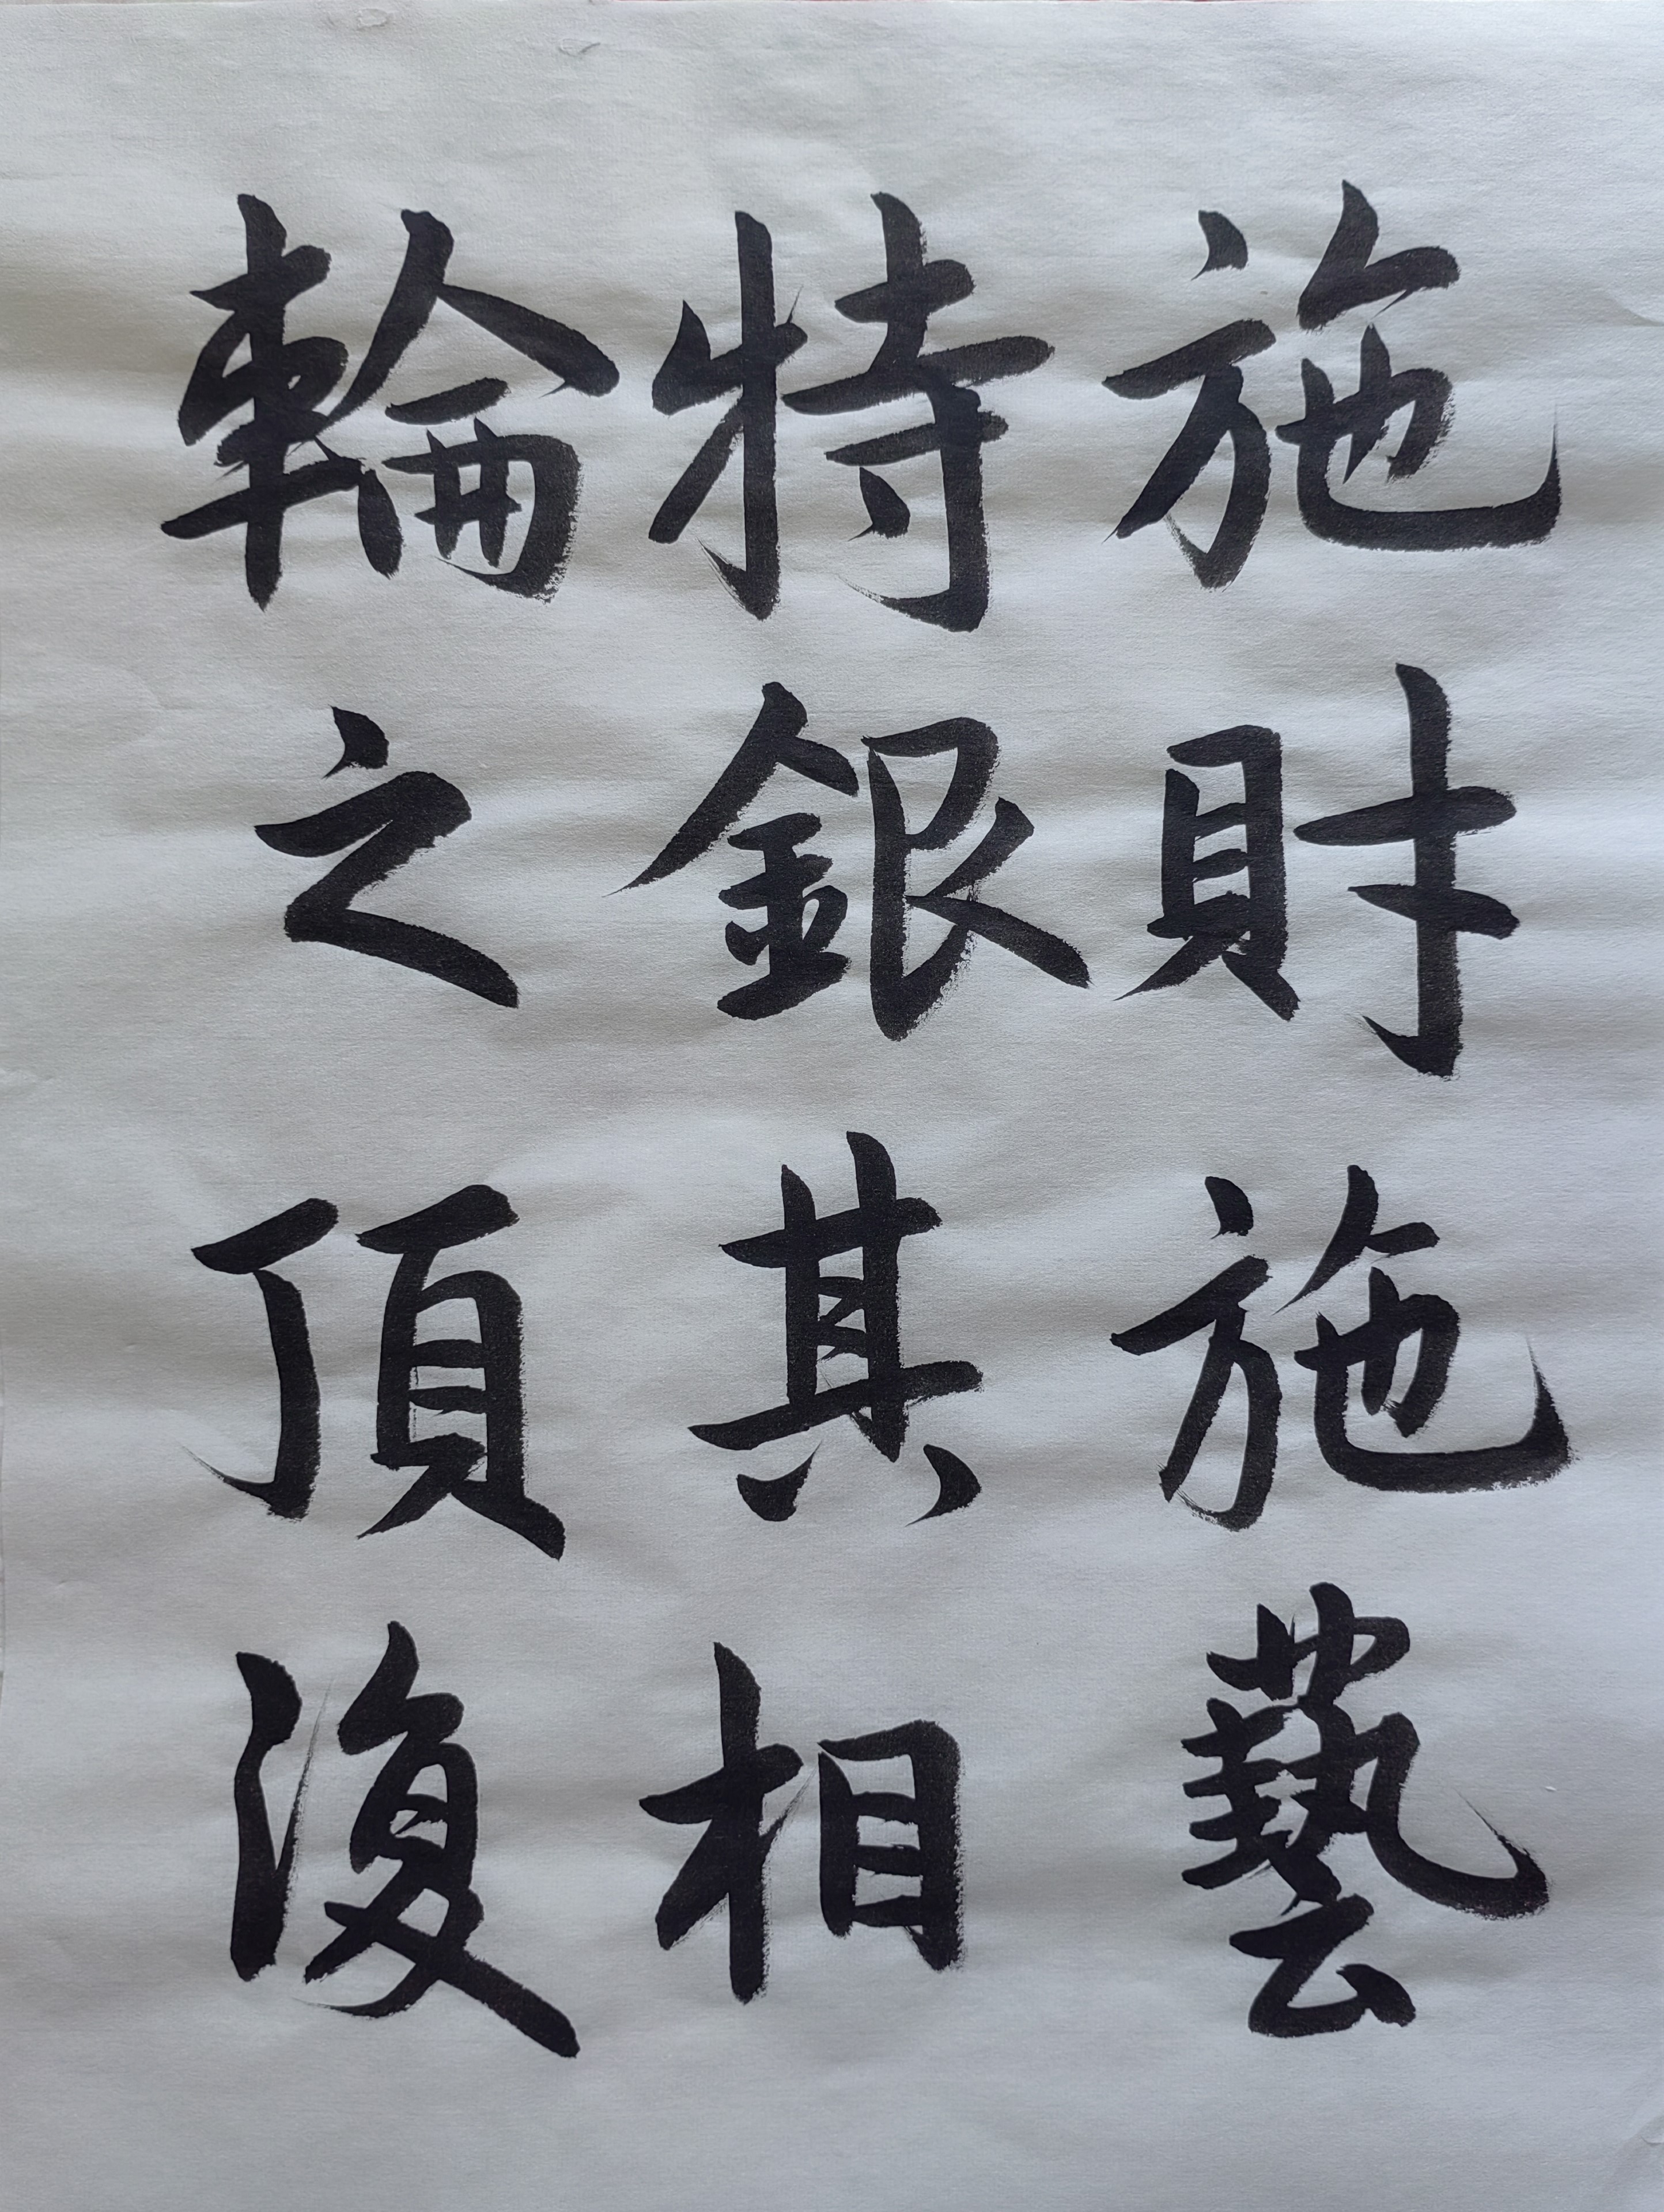 施財施藝
特銀其相
輪之頂復